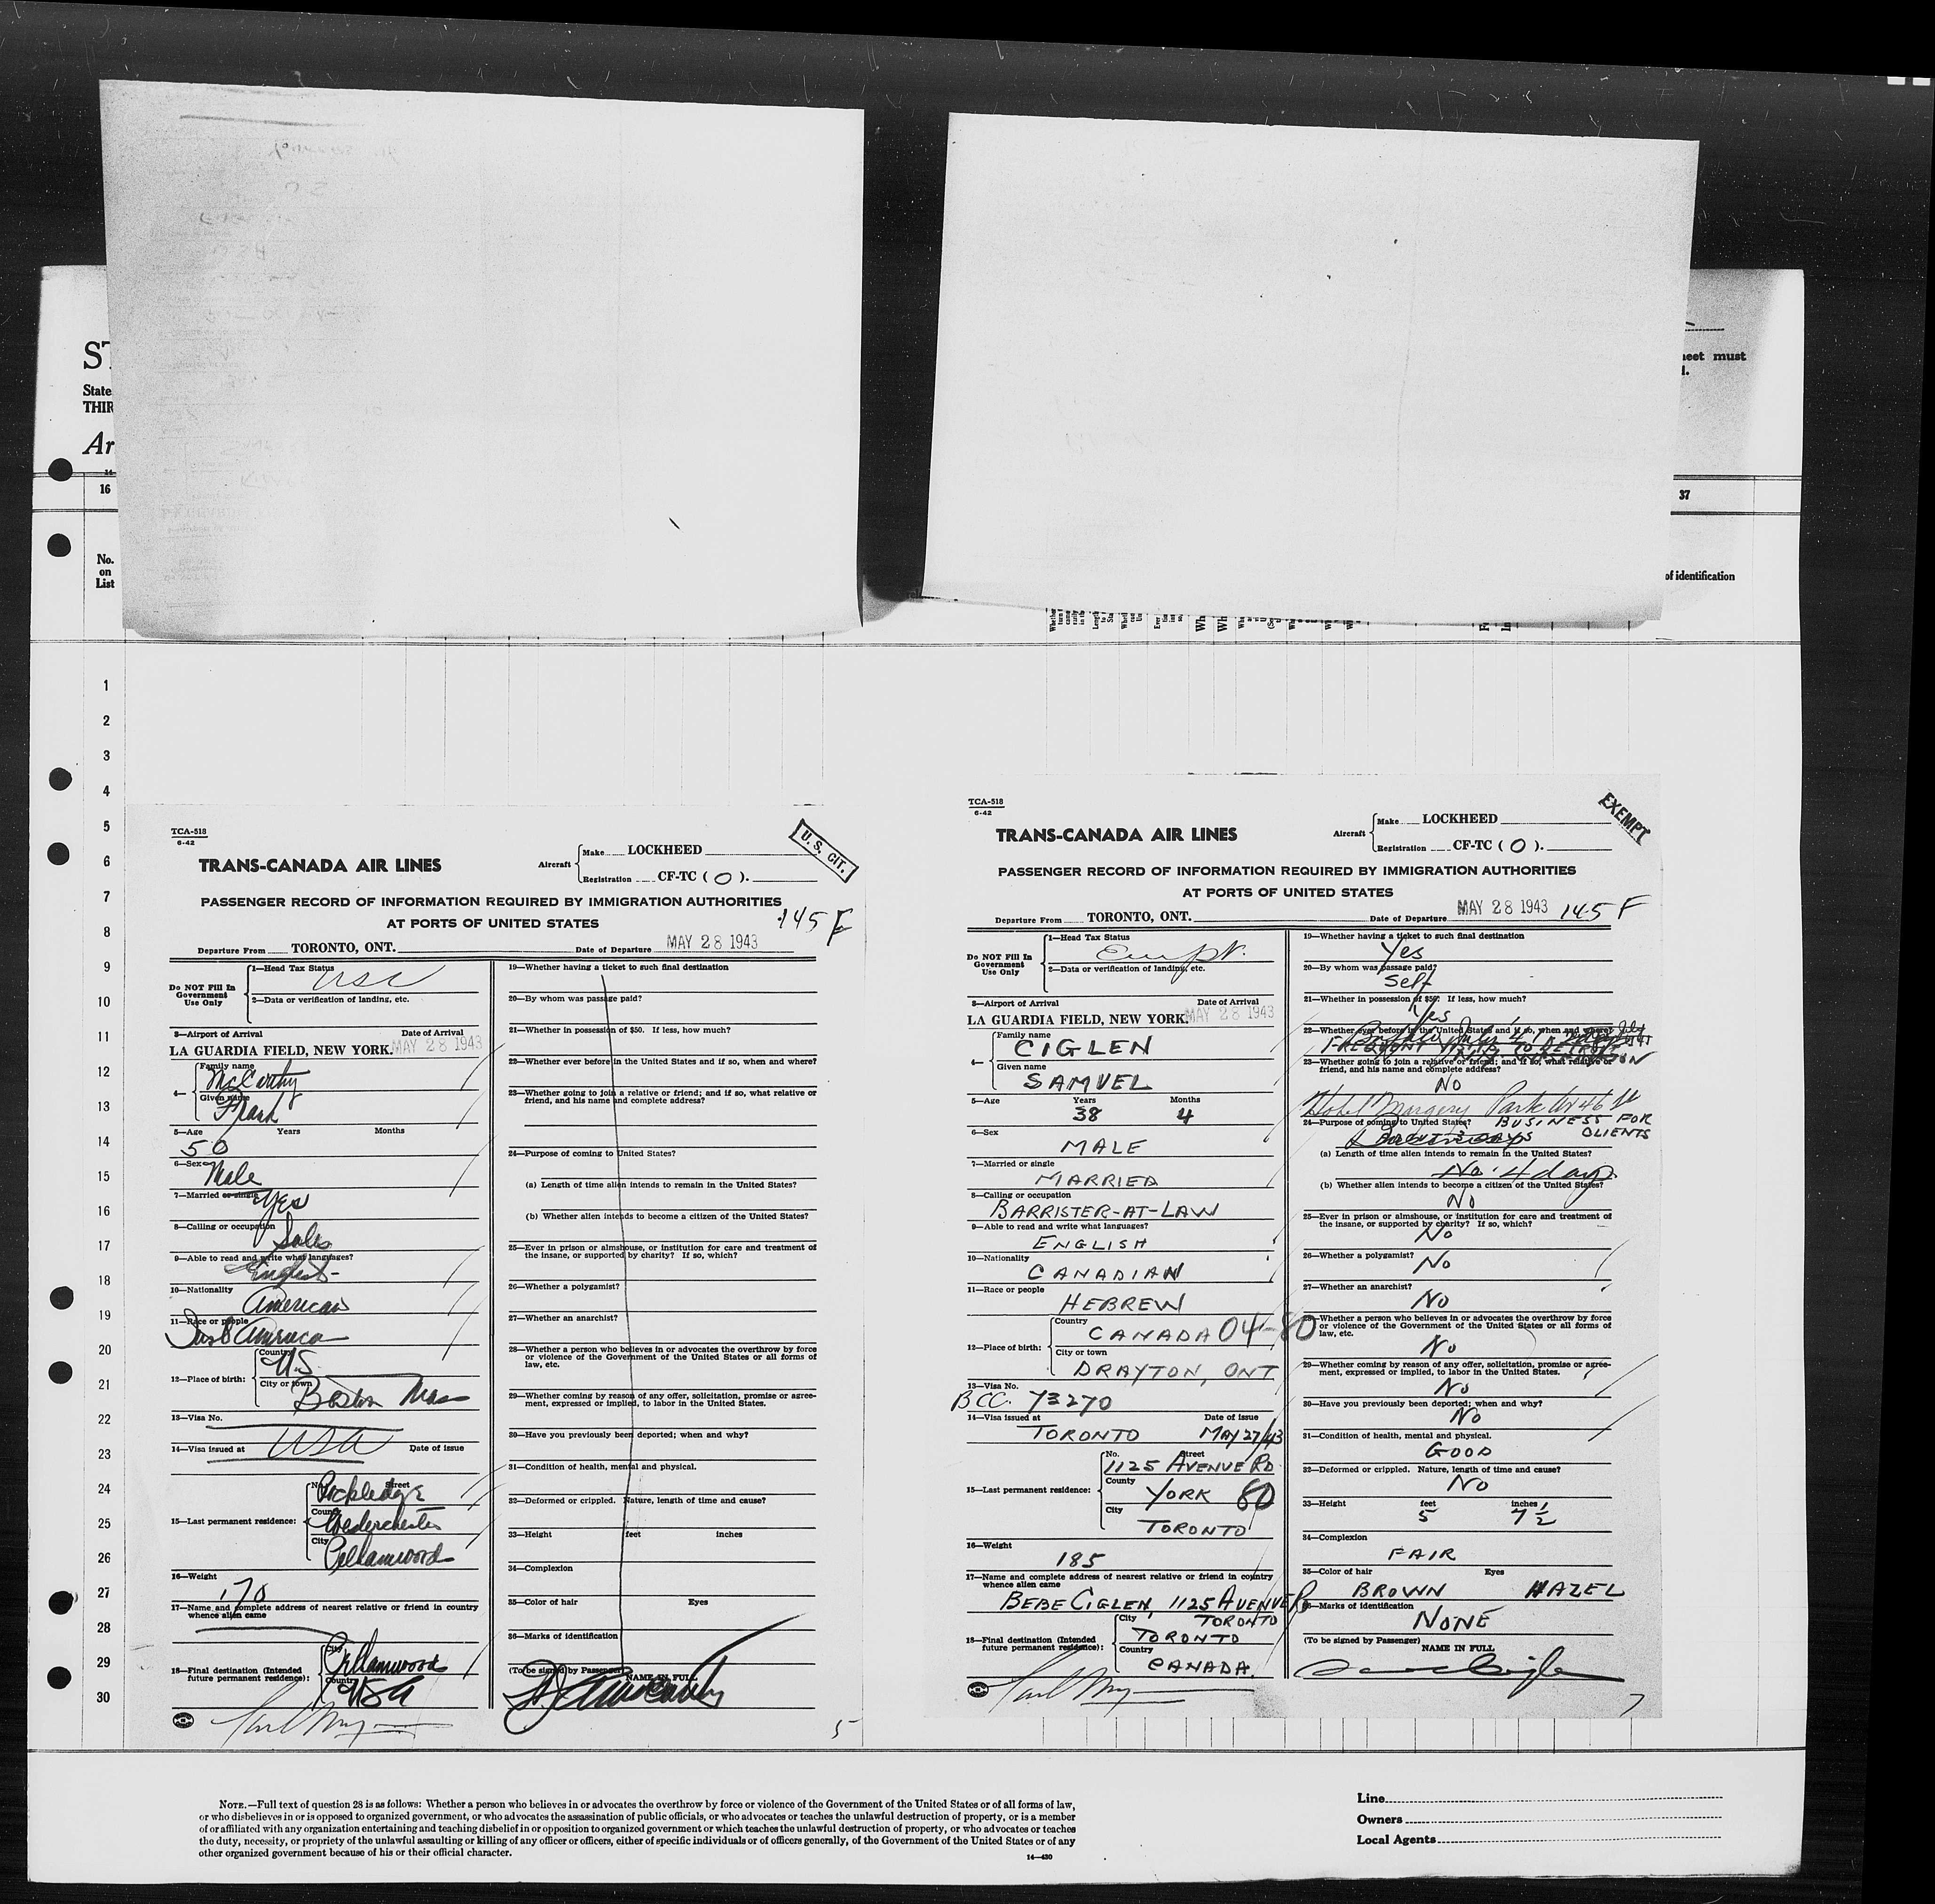 ST
State
THIR
Ar
16
No.
on
List
eet must
37
of identification
1
2
3
4
5
6
7
8
9
10
11
12
13
14
15
16
17
18
19
20
21
22
23
24
25
26
27
28
29
30
TCA-518
6-42
U. S. CIT.
TRANS-CANADA AIR LINES
Aircraft
Make LOCKHEED
Registration CF-TC ( O ).
PASSENGER RECORD OF INFORMATION REQUIRED BY IMMIGRATION AUTHORITIES
AT PORTS OF UNITED STATES
145 F
Departure From TORONTO, ONT. Date of Departure MAY 28 1943
Do NOT Fill In Government Use Only
1—Head Tax Status USC
2—Data or verification of landing, etc.
3—Airport of Arrival Date of Arrival
LA GUARDIA FIELD, NEW YORK. MAY 28 1943
4— Family name McCarthy
Given name Frank
5—Age Years Months
50
6—Sex Male
7—Married or single Yes
8—Calling or occupation
Sales
9—Able to read and write what languages?
English
10—Nationality
American
11—Race or people
12—Place of birth: Country U.S.
City or town
Boston Mass
13—Visa No.
14—Visa issued at USA Date of issue
15—Last permanent residence: No. Street
County
City
Pelhamwood
16—Weight
170
17—Name and complete address of nearest relative or friend in country
whence alien came
18—Final destination (Intended
future permanent residence):
City
Pelhamwood
Country USA
19—Whether having a ticket to such final destination
20—By whom was passage paid?
21—Whether in possession of $50. If less, how much?
22—Whether ever before in the United States and if so, when and where?
23—Whether going to join a relative or friend; and if so, what relative or
friend, and his name and complete address?
24—Purpose of coming to United States?
(a) Length of time alien intends to remain in the United States?
(b) Whether alien intends to become a citizen of the United States?
25—Ever in prison or almshouse, or institution for care and treatment of
the insane, or supported by charity? If so, which?
26—Whether a polygamist?
27—Whether an anarchist?
28—Whether a person who believes in or advocates the overthrow by force
or violence of the Government of the United States or all forms of
law, etc.
29—Whether coming by reason of any offer, solicitation, promise or agree-
ment, expressed or implied, to labor in the United States.
30—Have you previously been deported; when and why?
31—Condition of health, mental and physical.
32—Deformed or crippled. Nature, length of time and cause?
33—Height feet inches
34—Complexion
35—Color of hair Eyes
36—Marks of identification
(To be signed by Passenger)
NAME IN FULL
5
TCA-518
6-42
EXEMPT
TRANS-CANADA AIR LINES
Aircraft
Make LOCKHEED
Registration CF-TC ( O ).
PASSENGER RECORD OF INFORMATION REQUIRED BY IMMIGRATION AUTHORITIES
AT PORTS OF UNITED STATES
Departure From TORONTO, ONT. Date of Departure MAY 28 1943 145 F
Do NOT Fill In Government Use Only
1—Head Tax Status
2—Data or verification of landing, etc.
3—Airport of Arrival Date of Arrival
LA GUARDIA FIELD, NEW YORK. MAY 28 1943
4— Family name
CIGLEN
Given name
SAMUEL
5—Age Years Months
38 4
6—Sex
MALE
7—Married or single
MARRIED
8—Calling or occupation
BARRISTER-AT-LAW
9—Able to read and write what languages?
ENGLISH
10—Nationality
CANADIAN
11—Race or people
HEBREW
12—Place of birth: Country
CANADA 04-80
City or town
DRAYTON, ONT
13—Visa No.
BCC. 73270
14—Visa issued at Date of issue
TORONTO MAY 27/43
15—Last permanent residence: No. Street
1125 AVENUE RD
County
YORK 80
City
TORONTO
16—Weight
185
17—Name and complete address of nearest relative or friend in country
whence alien came
BEBE CIGLEN, 1125 AVENUE RD
TORONTO
18—Final destination (Intended
future permanent residence):
City
TORONTO
Country
CANADA.
19—Whether having a ticket to such final destination
Yes
20—By whom was passage paid?
Self
21—Whether in possession of $50. If less, how much?
Yes
22—Whether ever before in the United States and if so, when and where?
FREQUENT
23—Whether going to join a relative or friend; and if so, what relative or
friend, and his name and complete address?
No
Hotel Margery Park Av 46 St
24—Purpose of coming to United States? BUSINESS FOR
CLIENTS
(a) Length of time alien intends to remain in the United States?
No. 4 days
(b) Whether alien intends to become a citizen of the United States?
No
25—Ever in prison or almshouse, or institution for care and treatment of
the insane, or supported by charity? If so, which?
No
26—Whether a polygamist?
No
27—Whether an anarchist?
No
28—Whether a person who believes in or advocates the overthrow by force
or violence of the Government of the United States or all forms of
law, etc.
No
29—Whether coming by reason of any offer, solicitation, promise or agree-
ment, expressed or implied, to labor in the United States.
No
30—Have you previously been deported; when and why?
No
31—Condition of health, mental and physical.
GOOD
32—Deformed or crippled. Nature, length of time and cause?
No
33—Height feet inches
5 7 1/2
34—Complexion
FAIR
35—Color of hair Eyes
BROWN HAZEL
36—Marks of identification
NONE
(To be signed by Passenger)
NAME IN FULL
7
NOTE.—Full text of question 28 is as follows: Whether a person who believes in or advocates the overthrow by force or violence of the Government of the United States or of all forms of law,
or who disbelieves in or is opposed to organized government, or who advocates the assassination of public officials, or who advocates or teaches the unlawful destruction of property, or is a member
of or affiliated with any organization entertaining and teaching disbelief in or opposition to organized government or which teaches the unlawful destruction of property, or who advocates or teaches
the duty, necessity, or propriety of the unlawful assaulting or killing of any officer or officers, either of specific individuals or of officers generally, of the Government of the United States or of any
other organized government because of his or their official character.
14—430
Line
Owners
Local Agents